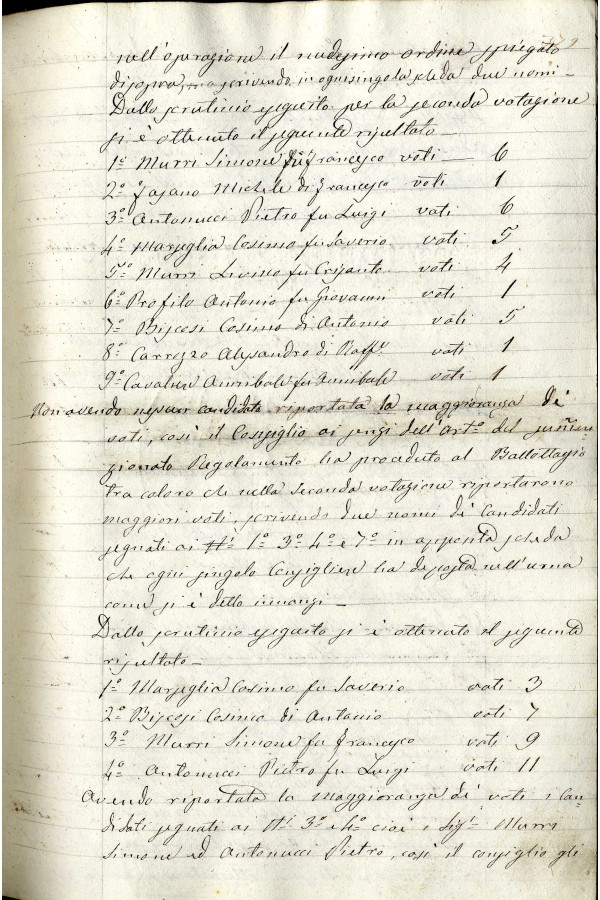 nell'operazione il medesimo ordine spiegato
disopra, scrivendo in ogni singola scheda due nomi_
Dallo scrutinio eseguito per la seconda votazione
si è ottenuto il seguente risultato_
1º Murri Simone fu Francesco voti _ 6
2º Fasano Michele di Francesco voti 1
3º Antonucci Pietro fu Luigi voti 6
4º Marseglia Cosimo fu Saverio voti 5
5º Murri Livino fu Crisanto voti 4
6º Profilo Antonio fu Giovanni voti 1
7º Biscosi Cosimo di Antonio voti 5
8º Carrozzo Alessandro di Raff. voti 1
9º Cavaliere Annibale fu Annibale voti 1
Non avendo nessun candidato riportata la maggioranza de'
voti, così il Consiglio ai sensi dell'Artº del sumen-
zionato Regolamento ha proceduto al Ballottaggio
tra coloro che nella seconda votazione riportarono
maggiori voti, scrivendo due nomi de' candidati
segnati ai Ni 1º 3º 4º e 7º in apposita scheda
che ogni singolo Consigliere ha deposta nell'urna
come si è detto innanzi_
Dallo scrutinio eseguito si è ottenuto il seguente
risultato_
1º Marseglia Cosimo fu Saverio voti 3
2º Biscosi Cosimo di Antonio voti 7
3º Murri Simone fu Francesco voti 9
4º Antonucci Pietro fu Luigi voti 11
Avendo riportata la maggioranza de' voti i Can-
didati segnati ai Ni 3º e 4º cioè i Sigi Murri
Simone ed Antonucci Pietro, così il consiglio gli